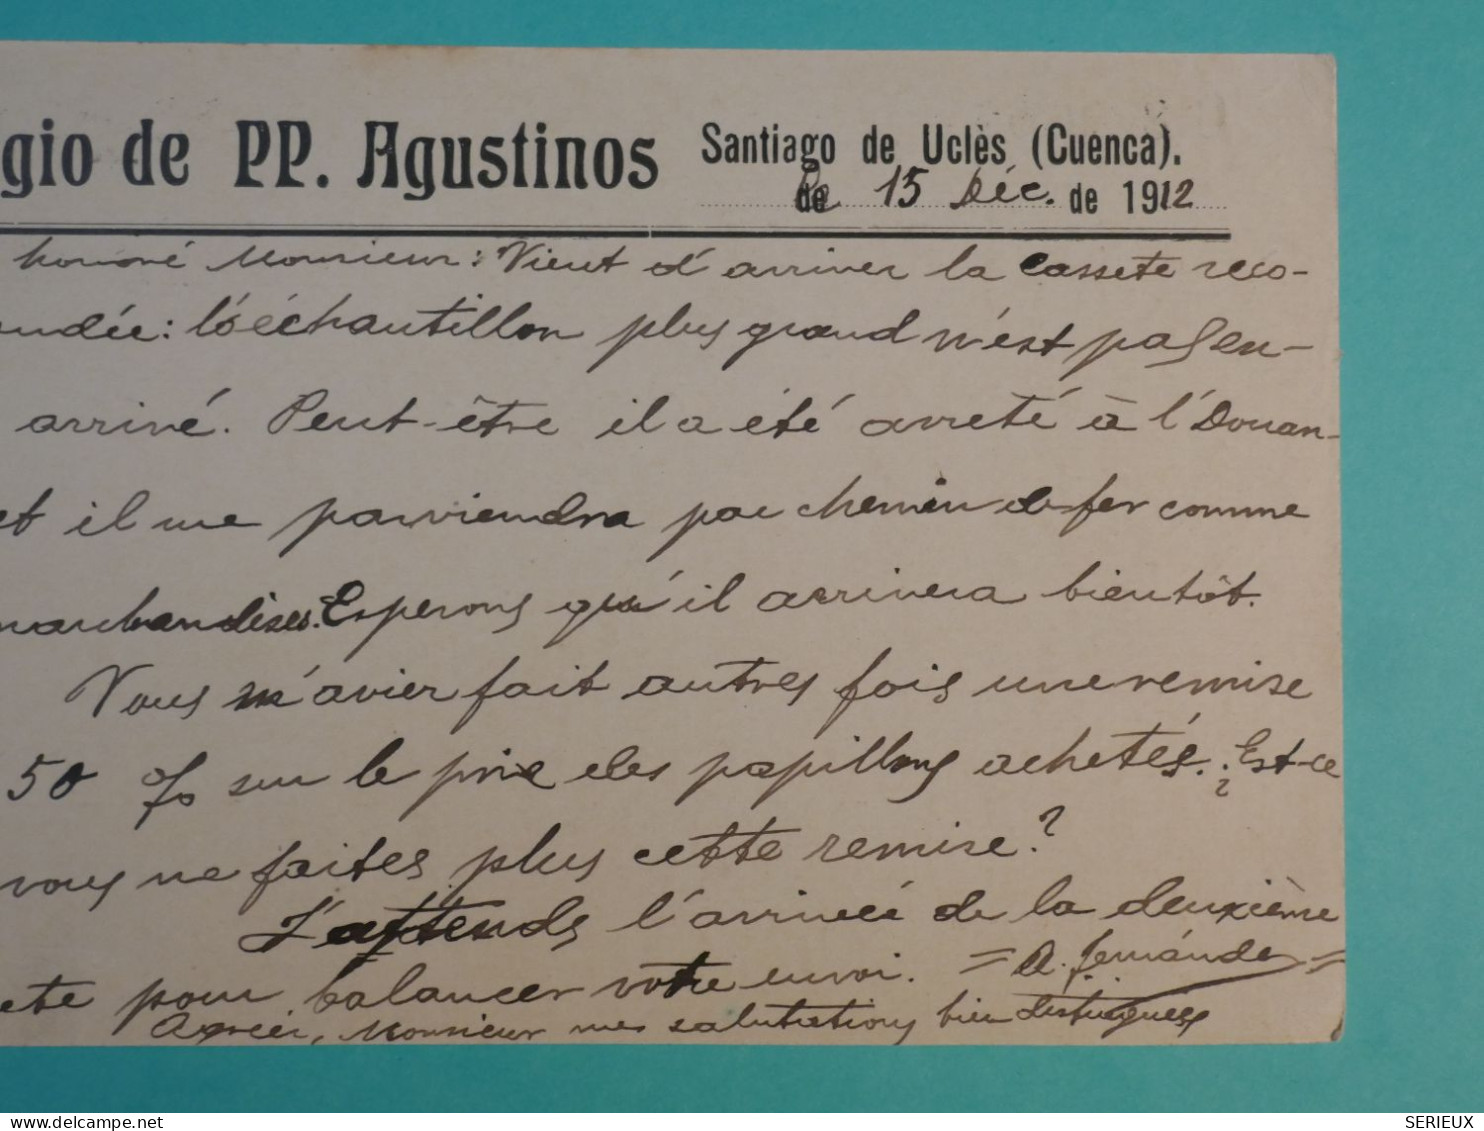 gio de PP. Agustinos
Santiago de Uclès (Cuenca).
de 15 Déc. de 1912
honoré Monsieur: Vient d'arriver la cassete reco-
ndée: l'échantillon plus grand n'est pas en-
arrivé. Peut-être il a été arreté à l'Douan-
et il me parviendra par chemin de fer comme
marchandises. Esperons qu'il arrivera bientôt.
Vous m'avier fait autres fois une remise
50 % sur le prix des papillons achetés. ¿Est-ce
vous ne faites plus cette remise?
J'attends l'arrivée de la deuxième
ete pour balancer votre envoi. = A. Fernández =
Agréer, Monsieur mes salutations bien distinguées
SERIEUX